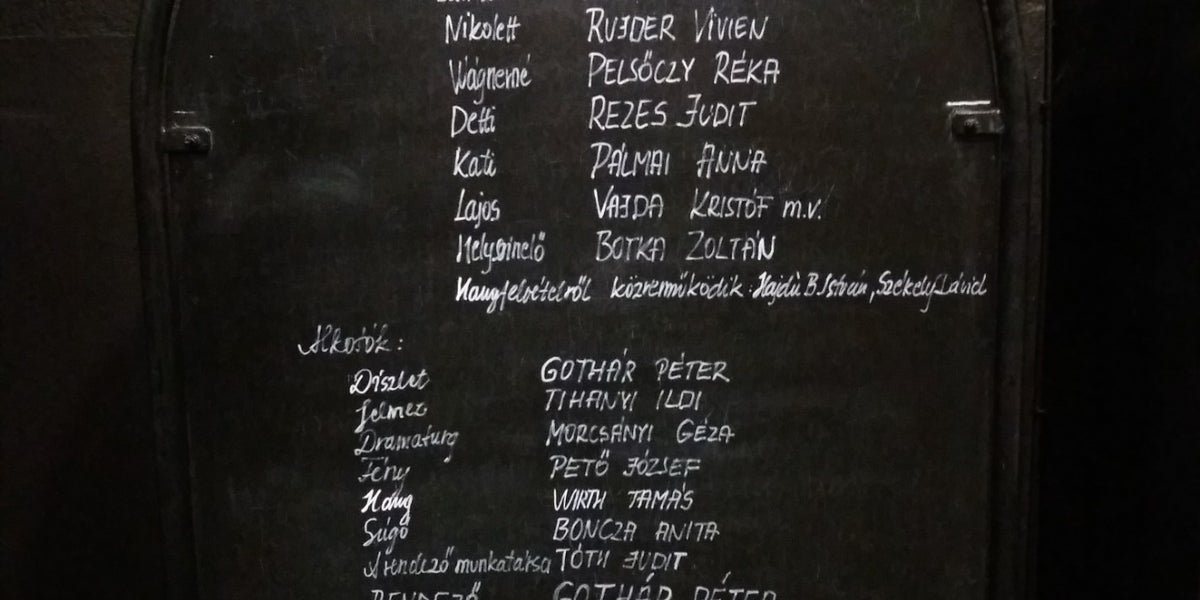 Nikolett RUJDER VIVIEN
Wágnerné PELSŐCZY RÉKA
Detti REZES JUDIT
Kati PÁLMAI ANNA
Lajos VAJDA KRISTÓF m.v.
Helyszínelő BOTKA ZOLTÁN
Hangfelvételről közreműködik: Hajdú B. István, Székely Dávid
Alkotók:
Díszlet GOTHÁR PÉTER
Jelmez TIHANYI ILDI
Dramaturg MORCSÁNYI GÉZA
Fény PETŐ JÓZSEF
Hang WIRTH TAMÁS
Súgó BONCZA ANITA
A rendező munkatársa TÓTH JUDIT
RENDEZŐ GOTHÁR PÉTER